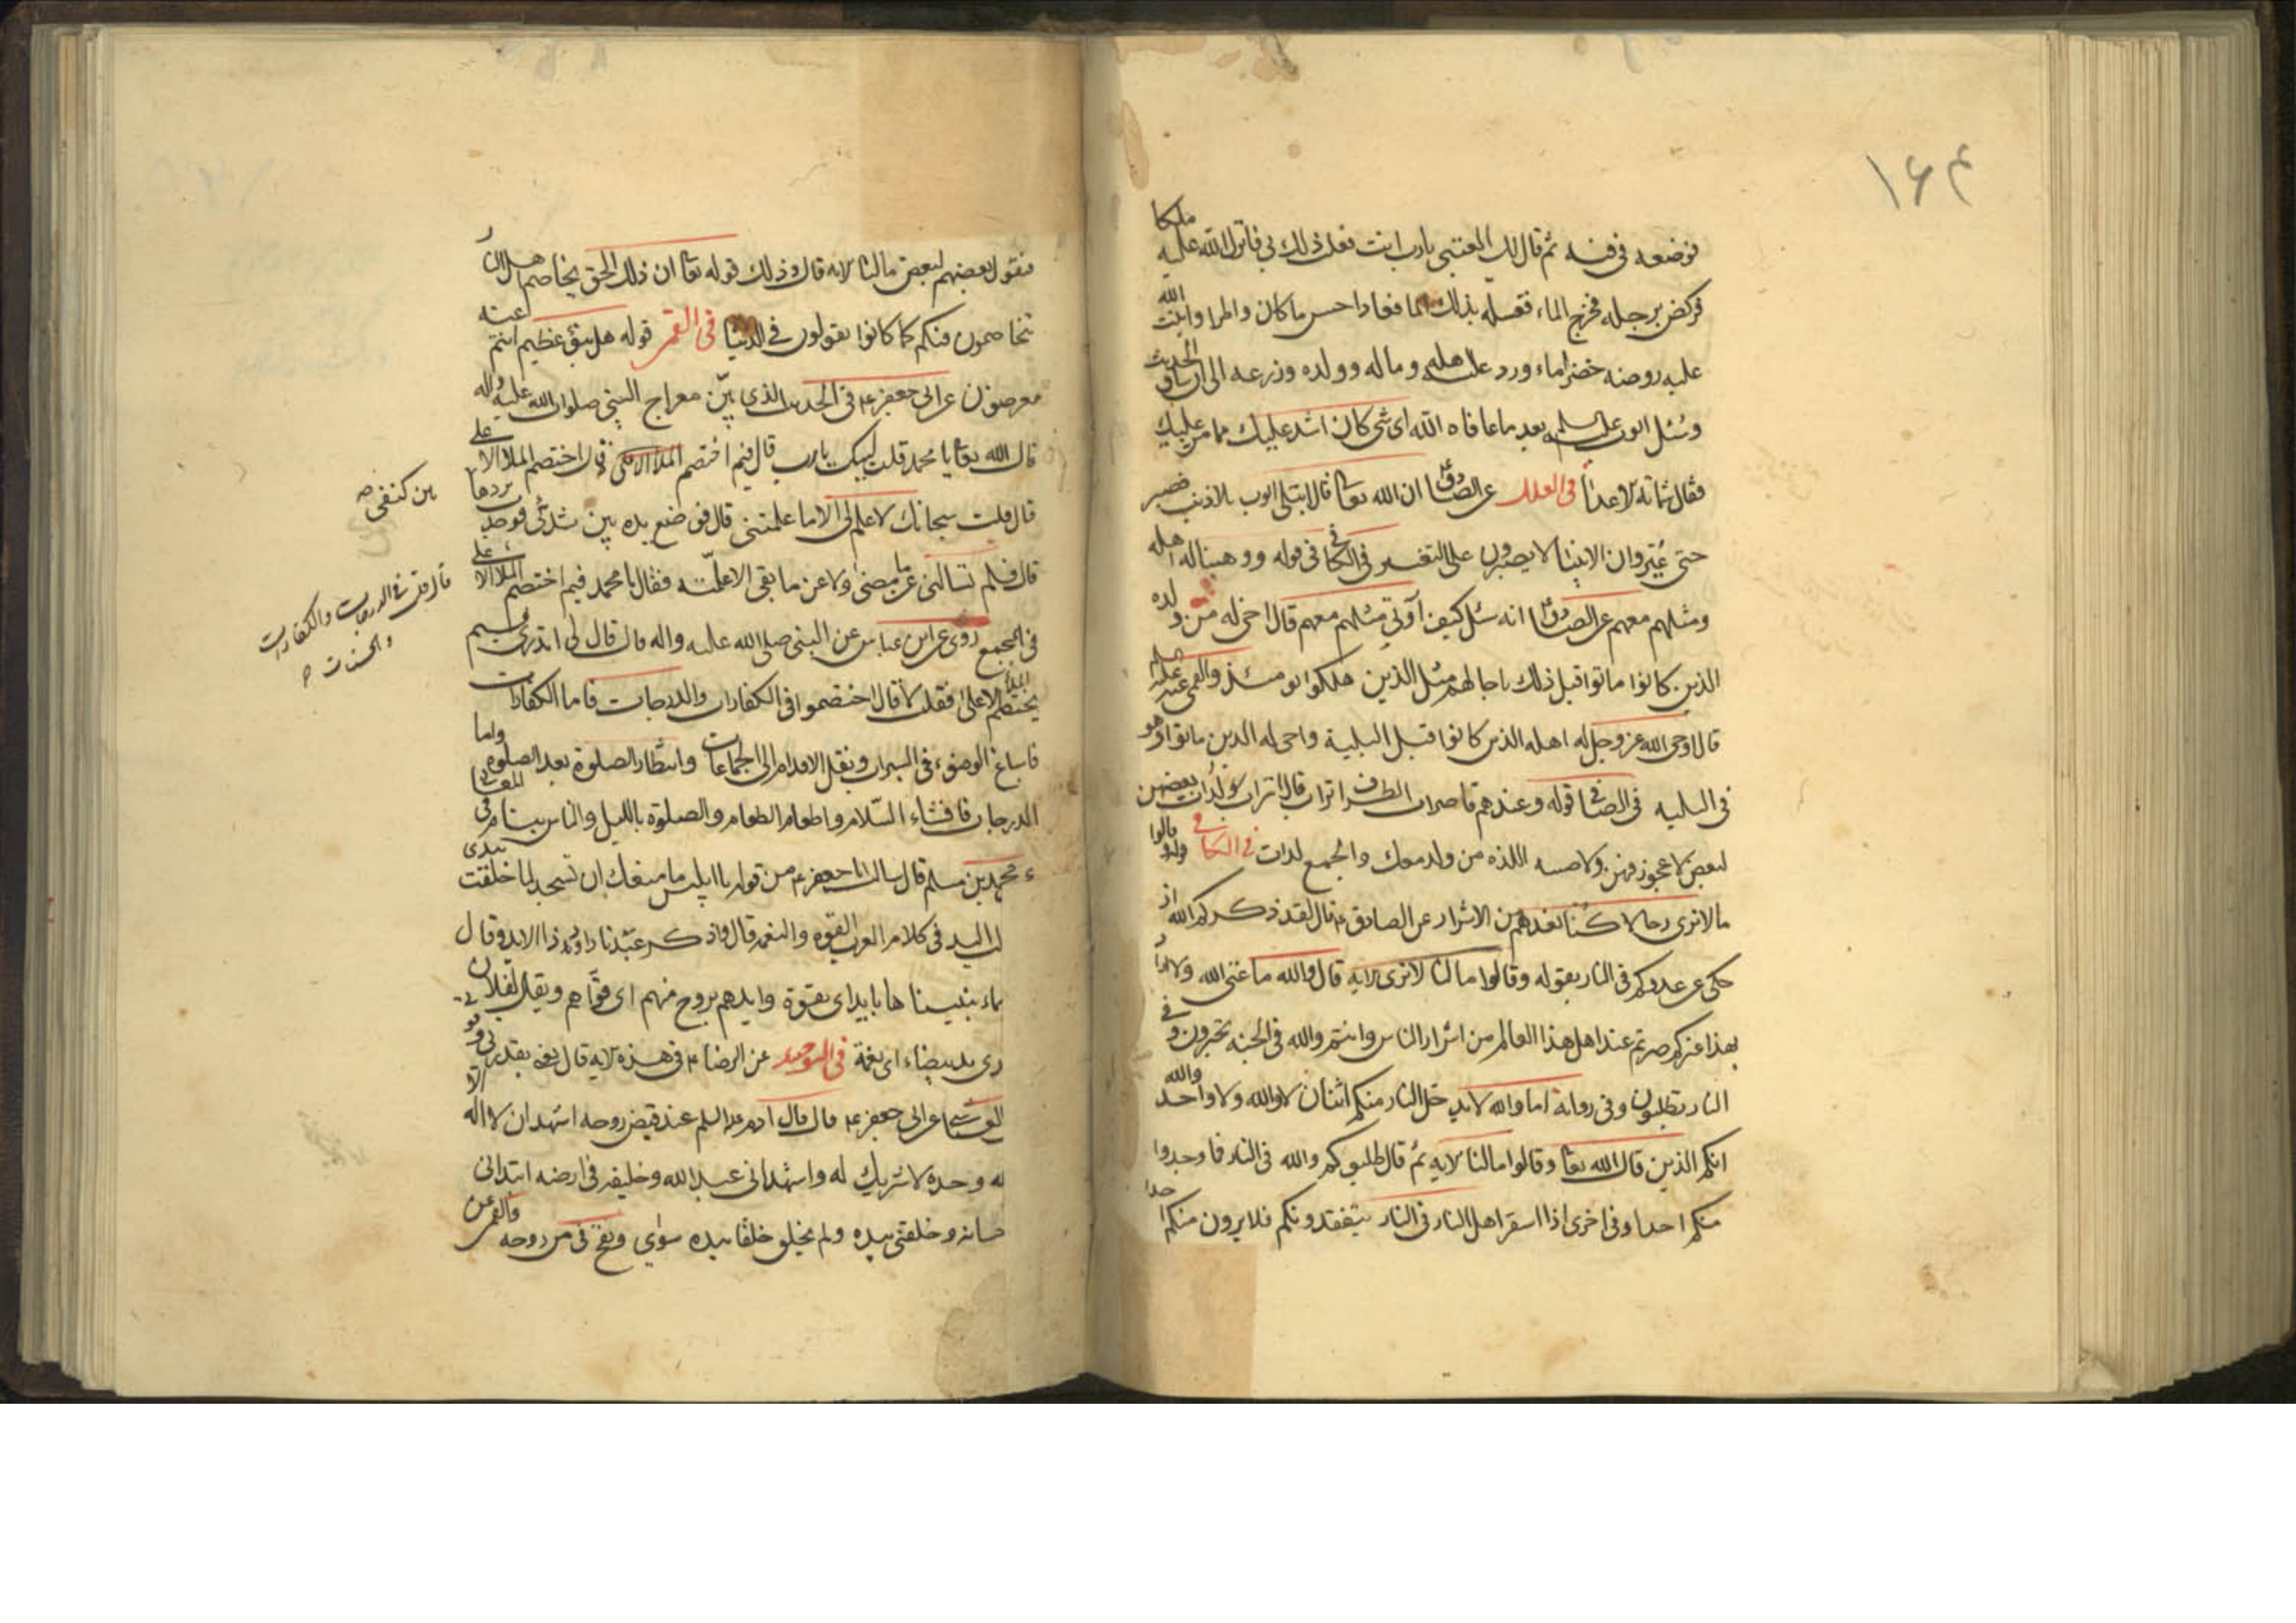 ۱۶۴
فوضعه فى فيه ثم قال لك العتبى يا رب انت فعلت ذلك بى فانزل الله عليه ملكا
فركض برجله فخرج الماء فغسله بذلك الماء فعاد احسن ما كان واطرا وانبت الله
عليه روضة خضراء ورد عليه اهله وماله وولده وزرعه الى ان ساق الحديث
وسئل ايوب عليه السلم بعد ما عافاه الله اى شى كان اشد عليك مما مر عليك
فقال شماتة الاعدا فى العلل عن الصادق ان الله تعا قال ابتلى ايوب بلا ذنب فصبر
حتى عُيّر وان الانبيا لا يصبرون على التعيير فى الكافى فى قوله ووهبنا له اهله
ومثلهم معهم عن الصادق انه سئل كيف اوتى مثلهم معهم قال احى له من ولده
الذين كانوا ماتوا قبل ذلك باجالهم مثل الذين هلكوا يومئذ والقمى عنه عليه السلم
قال احى الله عز وجل له اهله الذين كانوا قبل البلية واحى له الذين ماتوا وهو
فى البليه فى الصافى قوله وعندهم قاصرات الطرف اتراب قال اتراب لدات بعضهن
لبعض لا عجوز فيهن ولا صبيه اللده من ولد معك والجمع لدات فى الكافى وقالوا
ما لنا لا نرى رجالا كنا نعدهم من الاشرار عن الصادق ع قال لقد ذكركم الله اذ
حكى عن عدوكم فى النار بقوله وقالوا ما لنا لا نرى الايه قال والله ما عنى الله ولا اراد
بهذا غيركم صرتم عند اهل هذا العالم من اشرار الناس وانتم والله فى الجنه تحبرون وفى
النار تطلبون وفى رواية اما والله لا يدخل النار منكم اثنان لا والله ولا واحد والله
انكم الذين قال الله تعا وقالوا ما لنا الايه ثم قال طلبوكم والله فى النار فما وجدوا
منكم احدا وفى اخرى اذا استقر اهل النار فى النار يتفقدونكم فلا يرون منكم احدا
فيقول بعضهم لبعض ما لنا الايه قال وذلك قوله تعا ان ذلك لحق تخاصم اهل النار
يتخاصمون فيكم كما كانوا يقولون فى الدنيا فى القمى قوله هل نبؤ عظيم انتم عنه
معرضون عن ابى جعفر ع فى الحديث الذى بيّن معراج النبى صلوات الله عليه واله
قال الله تعا يا محمد قلت لبيك يا رب قال فيم اختصم الملا الاعلى قال اختصم الملا الاعلى
قال قلت سبحانك لا علم لى الا ما علمتنى قال فوضع يده بين ثدئى فوجدت بردها
بين كتفى صه
قال فلم تسالنى عن ما مضى ولا عن ما بقى الا علمته فقال يا محمد فيم اختصم الملا الاعلى
قال قلت فى الدرجات والكفارات
والحسنات
فى المجمع روى عن ابن عباس عن النبى صلى الله عليه واله قال قال لى اتدرى فيم
يختصم الملا الاعلى فقلت لا قال اختصموا فى الكفارات والدرجات فاما الكفارات
فاسباغ الوضوء فى السبرات ونقل الاقدام الى الجماعات وانتظار الصلوة بعد الصلوة واما
الدرجات فافشاء السّلام واطعام الطعام والصلوة بالليل والناس نيام فى
محمد بن مسلم قال سالت ابا جعفر ع من قوله يا ابليس ما منعك ان تسجد لما خلقت بيدى
اليد فى كلام العرب القوه والنعمه قال واذكر عبدنا داود ذا الايد وقال
بنيناها بايد اى بقوة وايدهم بروح منهم اى قوّاهم ويقال لفلان
يد بيضاء اى نعمة فى التوحيد عن الرضا ع فى هذه الايه قال يعنى بقدرتى وقو
عن ابى جعفر ع قال قال ادم عليه السلم عند قبض روحه اشهد ان لا اله الا
وحده لا شريك له واشهد انى عبد الله وخليفته فى ارضه ابتدانى
وخلقنى بيده ولم يخلق خلقا بيده سواى ونفخ فى من روحه والقمى عن